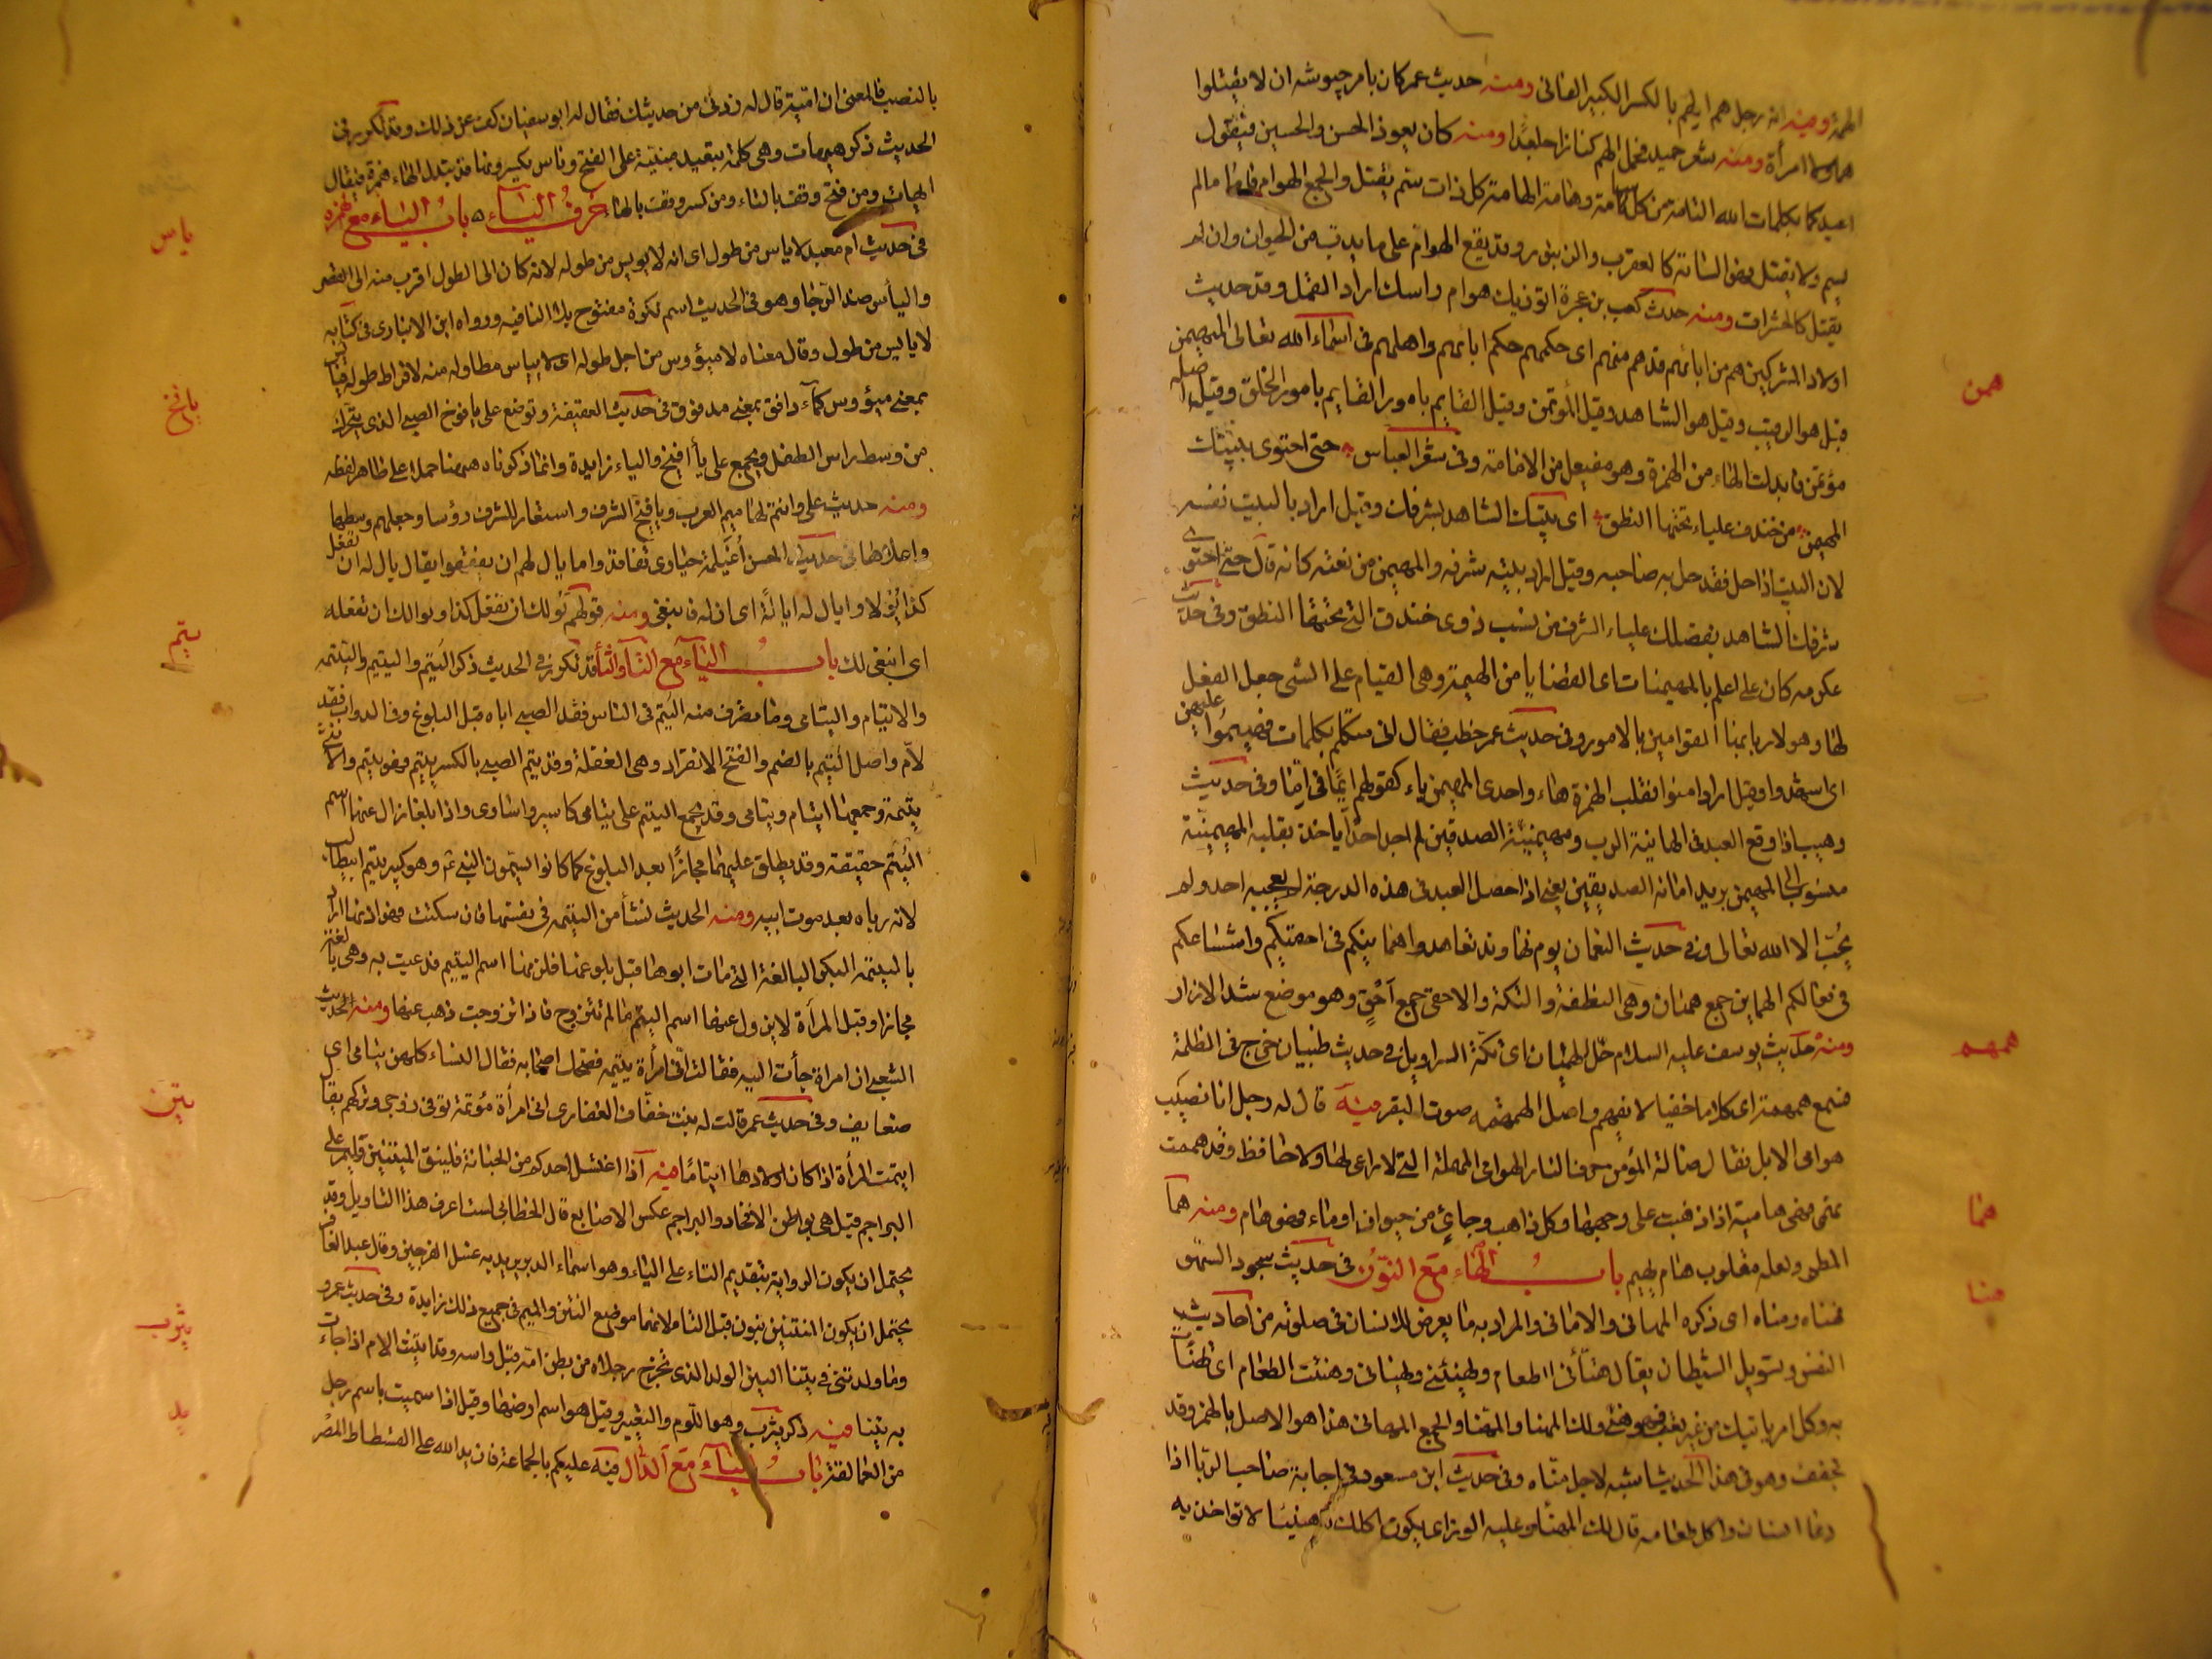 الهمة وفيه انه رجل هم اي لهم بالكسر الكبير الفاني ومنه حديث عمر كان يامر جيوشه ان لا يقتلوا
هما ولا امرأة ومنه شعر حميد فحمل الهم كنازا جلعدا ومنه كان يعوذ الحسن والحسين فيقول
اعيذكما بكلمات الله التامة من كل سامة وهامة الهامة كل ذات سم يقتل والجمع الهوام فاما ما لم
يسم ولا يقتل فهو السامة كالعقرب والزنبور وقد يقع الهوام على ما يدب من الحيوان وان لم
يقتل كالحشرات ومنه حدث كعب بن عجرة اتوذيك هوام راسك اراد القمل وقد حديث
اولاد المشركين هم من ابائهم قد هم منهم اى حكمهم حكم ابائهم واهلهم فى اسماء الله تعالى المهيمن
قيل هو الرقيب وقيل هو الشاهد وقيل المؤتمن وقيل القايم بامور الخلق وقيل اصله
مؤتمن فابدلت الهاء من الهمزة وهو مفيعل من الامانة وفى شعر العباس حتى احتوى بيتك
المهيمن من خندف علياء تحتها النطق اى بيتك الشاهد بشرفك وقيل اراد بالبيت نفسه
لان البيت اذا حل فقد حل به صاحبه وقيل اراد ببيته شرفه والمهيمن من نعته كانه قال حتى احتوى
شرفك الشاهد بفضلك علياء الشرف من نسب ذوى خندف التى تحتها النطق وفى حديث
عكرمه كان على اعلم بالمهيمنات اى القضايا من الهيمنة وهى القيام على الشى جعل الفعل
لها وهو لاربابها القوامين بالامور وفى حديث عمر خطب فقال انى متكلم بكلمات فهيمنوا عليهن
اى اشهدوا وقيل اراد امنوا فقلب الهمزة هاء واحدى الميمين ياء كقولهم ايما فى اما وفى حديث
وهيب اذا وقع العبد فى الهانية الرب ومهيمنية الصديقين لم اجد احدا ياخذ بقلبه المهيمنية
منسوب الى المهيمن يريد امانة الصديقين يعنى اذا حصل العبد فى هذه الدرجة لم يعجبه احد ولم
يحب الا الله تعالى وفى حديث النعمان يوم نهاوند تعاهدوا همانينكم فى احقيكم واشساعكم
فى نعالكم الهماين جمع هميان وهى المنطقة والتكة والاحقى جمع احق وهو موضع شد الازار
ومنه حديث يوسف عليه السلام حل الهميان اى تكة السراويل وفى حديث ظبيان خرج فى الظلمة
فسمع همهمة اى كلاما خفيا لا يفهم واصل الهمهمه صوت البقر فيه قال له رجل انا نصيب
هوامى الابل فقال ضالة المؤمن حرق النار الهوامى المهملة التى لا راعى لها ولا حافظ وقد هممت
تهمى فهى هامية اذا ذهبت على وجهها وكل ذاهب وجاى من حيوان او ماء فهو هام ومنه هما
المطر ولعله مقلوب هام يهيم باب الهاء مع النون فى حديث سجود السهو
فهناه ومناه اى ذكره المهانى والامانى والمراد به ما يعرض للانسان فى صلوته من احاديث
النفس وتسويل الشيطان يقال هنأنى الطعام ويهنئنى ويهنانى وهنئت الطعام اى تهنأت
به وكل امر ياتيك من غير تعب فهو هنئ ولك المهنا والمهنا والجمع المهانى هذا هو الاصل بالهمز وقد
تخفف وهو فى هذا الحديث اشبه لاجل مناه وفى حديث ابن مسعود فى اجابة صاحب الربا اذا
دعا انسانا واكل طعامه قال لك المهنأ وعليه الوزر اى يكون اكلك له هنيئا لا تواخذ به
همن
همهم
هما
هنا
بالنصب فالمعنى ان امية قال له زدنى من حديثك فقال له ابو سفيان كف عن ذلك وقد تكرر فى
الحديث ذكر هيهات وهى كلمة تبعيد مبنية على الفتح وناس يكسرونها قد تبدل الهاء همزة فيقال
ايهات ومن فتح وقف بالتاء ومن كسر وقف بالهاء حرف الياء باب الياء مع الهمزه
فى حديث ام معبد لا ياس من طول اى انه لا يويس من طوله لانه كان الى الطول اقرب منه الى القصر
والياس ضد الرجا وهو فى الحديث اسم نكرة مفتوح بلا النافيه ورواه ابن الانبارى فى كتابه
لا يايس من طول وقال معناه لا ميؤوس من اجل طوله اى لا يياس مطاوله منه لافراط طوله فيايس
بمعنى ميؤوس كماء دافق بمعنى مدفوق فى حديث العقيقة وتوضع على يافوخ الصبى الذى يتحرك
من وسط راس الطفل ويجمع على يآفيخ والياء زايدة وانما ذكرناه ههنا حملا على ظاهر لفظه
ومنه حديث على وانتم لهاميم العرب ويافيخ الشرف واستعار للشرف رؤسا وجعلهم وسطها
واعلاها فى حديث الحسن اغيلمة حيارى تفاقدوا ما يال لهم ان يفقهوا يقال يال له ان تفعل
كذا يؤل ولا وايال له ايالة اى ان له فانبغى ومنه قولهم نولك ان تفعل كذا ونوالك ان تفعله
اى انبغى لك باب الياء مع التا والثا قد تكرر فى الحديث ذكر اليتم واليتيم واليتيمه
والايتام واليتامى وما تصرف منه اليتم فى الناس فقد الصبى اباه قبل البلوغ وفى الدواب فقد
الام واصل اليتم بالضم والفتح الانفراد وهى الغفلة وقد يتم الصبى بالكسر ييتم فهو يتيم والانثى
يتيمة وجمعها ايتام ويتامى وقد يجمع اليتيم على يتامى كاسير واسارى واذا بلغا زال عنهما اسم
اليتم حقيقة وقد يطلق عليهما مجازا بعد البلوغ كما كانوا يسمون النبى وهو كبير يتيم ابى طالب
لانه رباه بعد موت ابيه ومنه الحديث تستأمر اليتيمه فى نفسها فان سكتت فهو اذنها اراد
باليتيمه البكر البالغة التى مات ابوها قبل بلوغها فلزمها اسم اليتيم فدعيت به وهى بالغة
مجازا وقيل المرأة لا يزول عنها اسم اليتم ما لم تتزوج فاذا تزوجت ذهب عنها ومنه الحديث
الشعبى ان امراة جأت اليه فقالت انى امرأة يتيمه فضحك اصحابه فقال النساء كلهن يتامى اى
ضعايف وفى حديث عمر قالت له بنت خفاف الغفارى انى امرأة مؤتمة توفى زوجى وتركهم يقال
ايتمت المرأة اذا كان اولادها ايتاما فيه اذا اغتسل احدكم من الجنابة فلينق الميتنين وليمر على
البراجم قيل هى بواطن الافخاذ والبراجم عكس الاصابع قال الخطابى لست اعرف هذا التاويل وقد
يحتمل ان يكون الرواية بتقديم التاء على الياء وهو اسماء الدبر يريد به غسل الفرجين وقال عبد الغافر
يحتمل ان يكون المنتنين بنون قبل التا لانهما موضع النتن والميم فى جميع ذلك زايدة وفى حديث عمرو
وما ولدتنى فى يتنا اليتن الولد الذى تخرج رجلاه من بطن امه قبل راسه وقد ايتنت الام اذا جاءت
به يتنا فيه ذكر يثرب وهو اللوم والتعيير وقيل هو اسم ارضها وقيل اذا سميت باسم رجل
من العمالقة باب الياء مع الدال فيه عليكم بالجماعة فان يد الله على الفسطاط المصر
ياس
يافخ
يتم
يتن
يثرب
يد